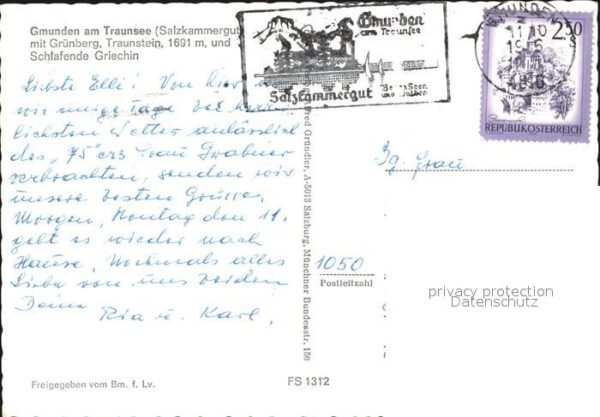 Gmunden am Traunsee (Salzkammergut)
mit Grünberg, Traunstein, 1691 m, und
Schlafende Griechin
Liebste Elli! Von hier wo
wir einige Tage bei herr-
lichsten Wetter anlässlich
des "75"ers Frau Grabner
verbrachten, senden wir
unsere besten Grüsse.
Morgen, Montag den 11.
geht es wieder nach
Hause. Nochmals alles
Liebe von uns beiden
Deine
Ria u. Karl.
Freigegeben vom Bm. f. Lv.
FS 1312
Gründler, A-5013 Salzburg, Münchner Bundesstr. 156
Gmunden
am Traunsee
Salzkammergut
GMUNDEN
4810
2.50
S
REPUBLIK ÖSTERREICH
Frau
1050
Postleitzahl
privacy protection
Datenschutz